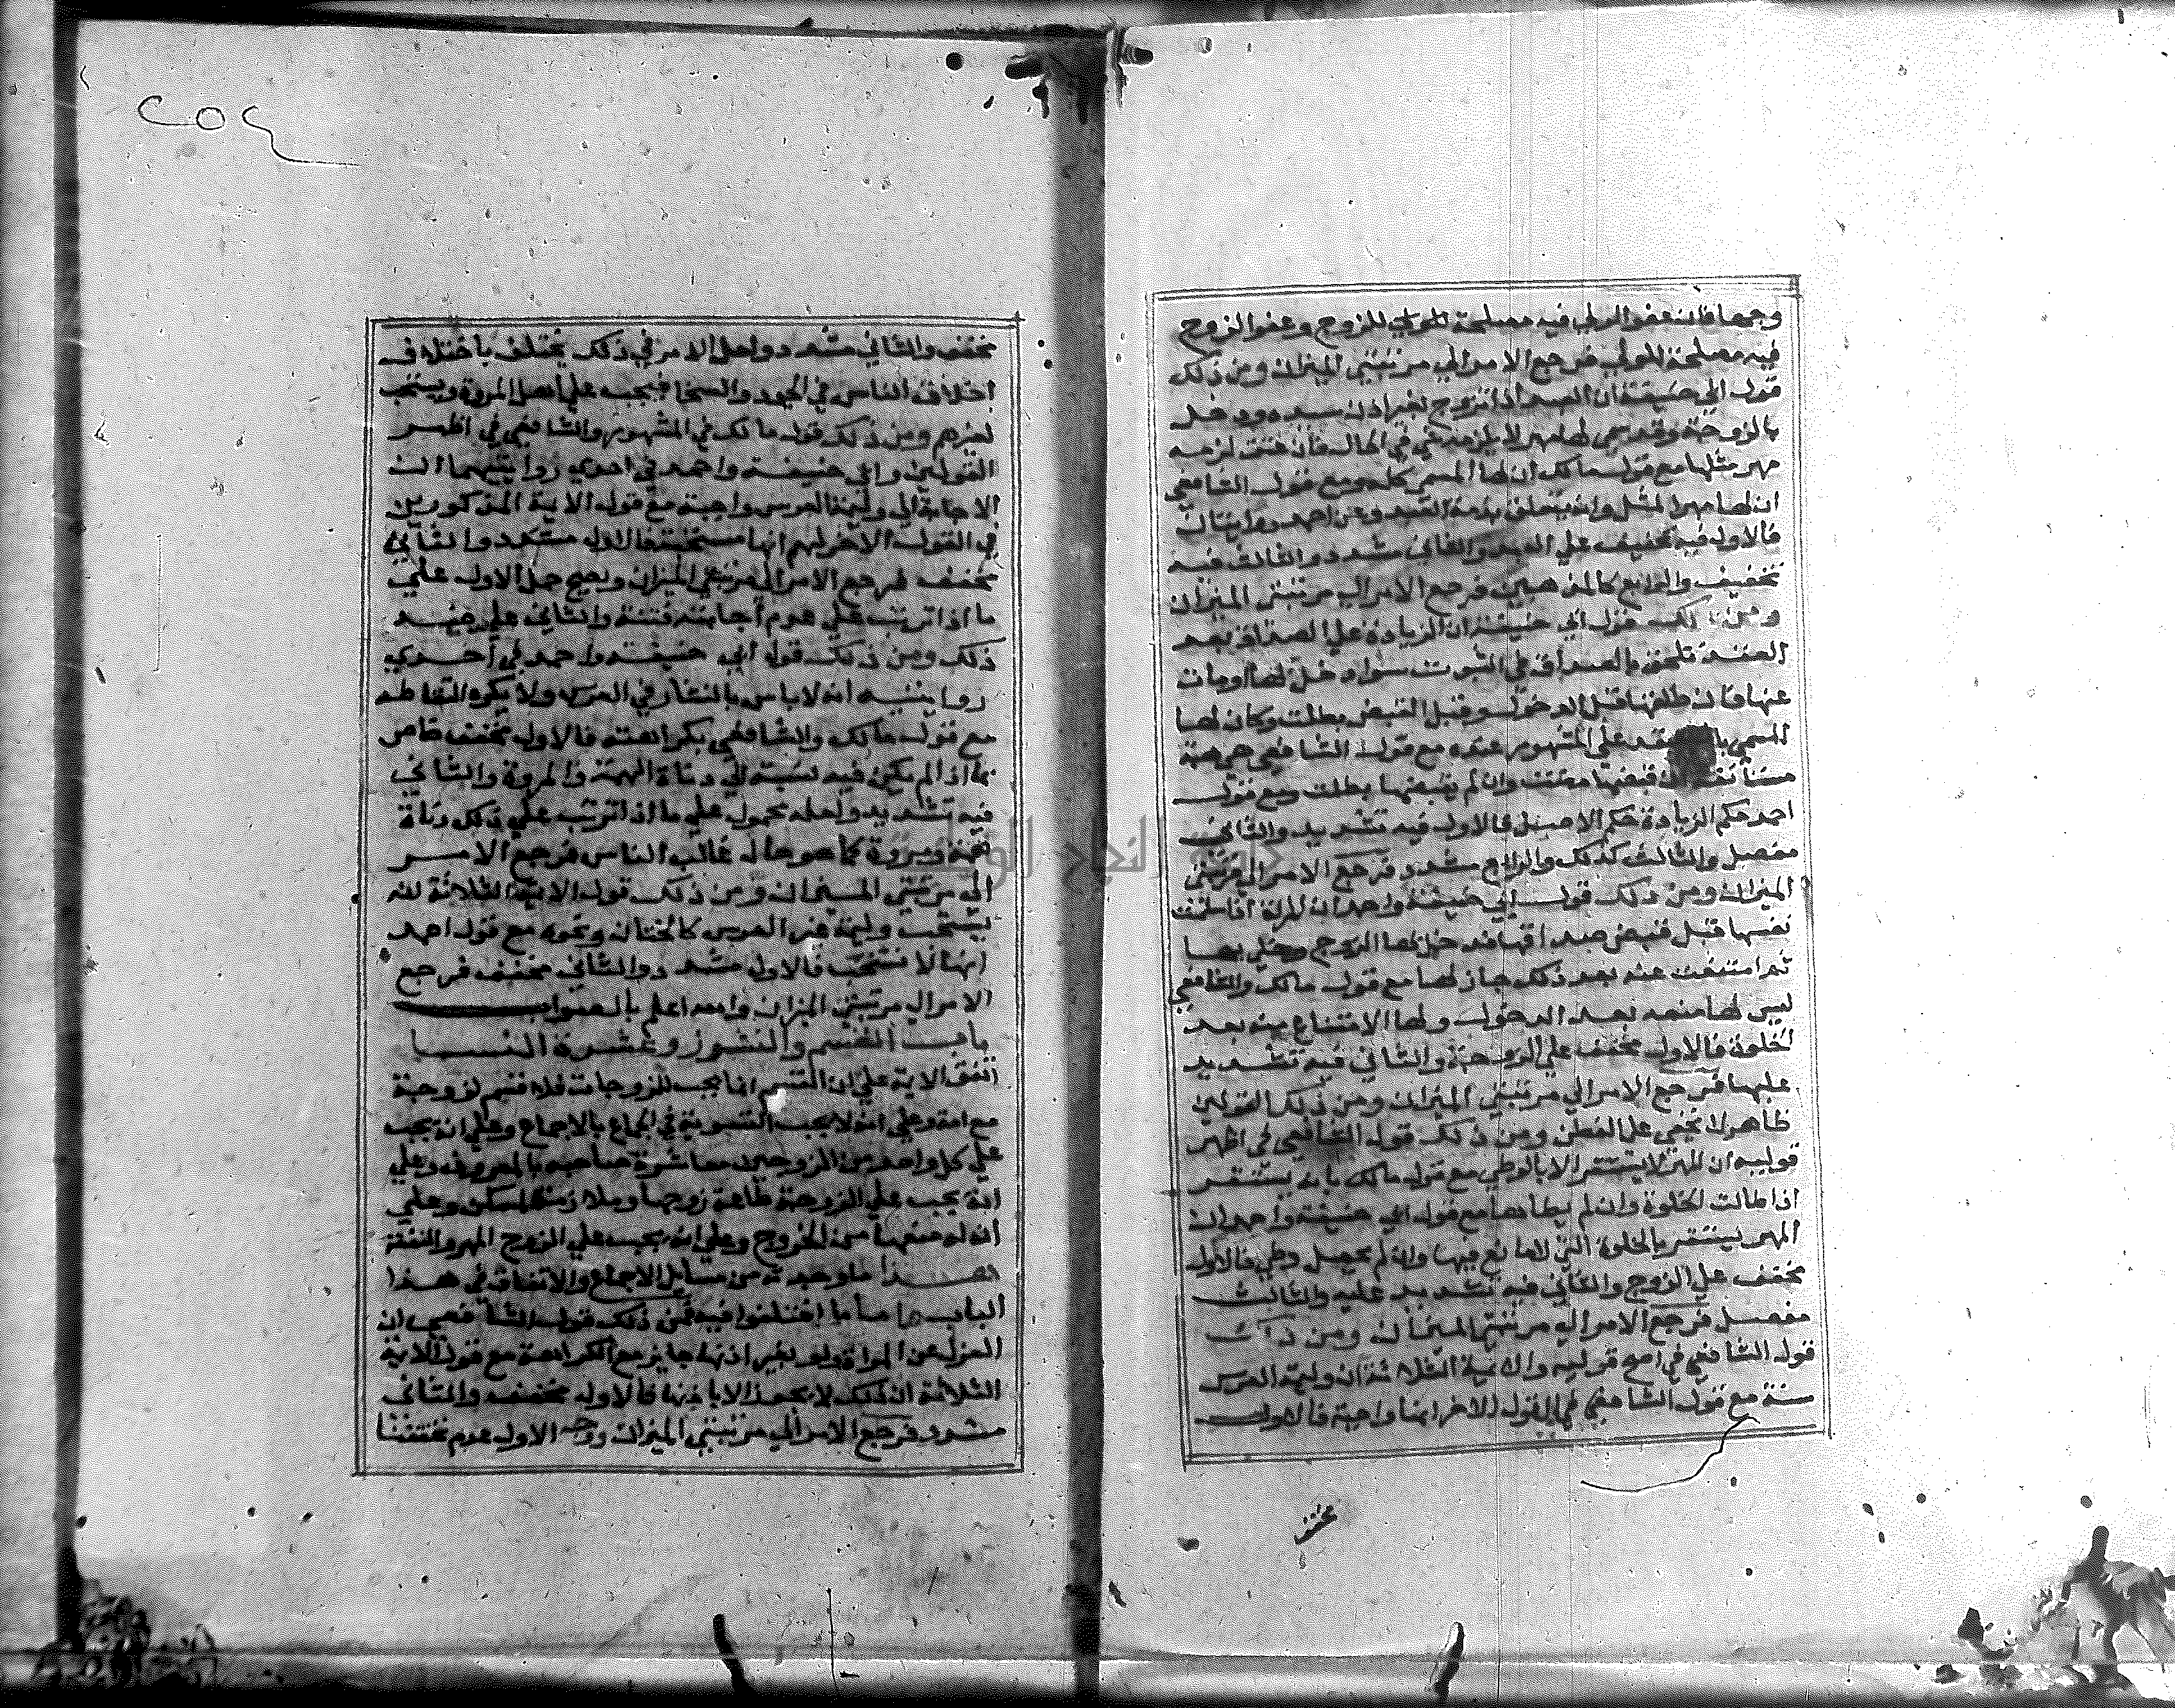 وجهها فان عفو الولي فيه مصلحة للولي للزوج وعفو الزوج
فيه مصلحة للولي فرجع الامر الي مرتبتي الميزان ومن ذلك
قول ابي حنيفة ان العبد اذا تزوج بغير اذن سيده ودخل
بالزوجة وقد سمي لها مهر لا يلزمه شي في الحال فان عتق لزمه
مهر مثلها مع قول مالك ان لها المسمي كله ومع قول الشافعي
ان لها مهر المثل وانه يتعلق بذمة العبد وعن احمد روايتان
فالاول فيه تخفيف علي العبد والثاني مشدد والثالث فيه
تخفيف والرابع كالمذهبين فرجع الامر الي مرتبتي الميزان
ومن ذلك قول ابي حنيفة ان الزيادة علي الصداق بعد
العقد تلحق بالصداق في الثبوت سوا دخل لها او مات
عنها فان طلقها قبل الدخول وقبل القبض بطلت وكان لها
المسمي بالعقد علي المشهور عنده مع قول الشافعي هي هبة
مستأنفة ان قبضها مضت وان لم يقبضها بطلت ومع قول
احمد حكم الزيادة حكم الاصل فالاول فيه تشديد والثاني
مفصل والثالث كذلك والرابع مشدد فرجع الامر الي مرتبتي
الميزان ومن ذلك قول ابي حنيفة واحمد ان المراة اذا سلمت
نفسها قبل قبض صداقها فدخل لها الزوج وخلي بها
ثم امتنعت عنه بعد ذلك جاز لها مع قول مالك والشافعي
ليس لها منعه بعد الدخول ولها الامتناع منه بعد
الخلوة فالاول مخفف علي الزوجة والثاني فيه تشديد
عليها فرجع الامر الي مرتبتي الميزان ومن ذلك القولين
ظاهر لا يخفي علي الفطن ومن ذلك قول الشافعي في اظهر
قوليه ان المهر لا يستقر الا بالوطي مع قول مالك بانه يستقر
اذا طالت الخلوة وان لم يطاها مع قول ابي حنيفة واحمد ان
المهر يستقر بالخلوة التي لا مانع فيها وان لم يحصل وطي فالاول
مخفف علي الزوج والثاني فيه تشديد عليه والثالث
مفصل فرجع الامر الي مرتبتي الميزان ومن ذلك
قول الشافعي في اصح قوليه والائمة الثلاثة ان وليمة العرس
سنة مع قول الشافعي في القول الاخر انها واجبة فالاول
مخفف
٢٥٤
مخفف والثاني مشدد واصل الامر في ذلك يختلف باختلاف
اختلاف الناس في الجود والسخا فيجب علي اهل المروة ويستحب
لغيرهم ومن ذلك قول مالك في المشهور والشافعي في اظهر
القولين وابي حنيفة واحمد في احدي روايتيهما ان
الاجابة الي وليمة العرس واجبة مع قول الاية المذكورين
في القول الاخر لهم انها مستحبة فالاول مشدد والثاني
مخفف فرجع الامر الي مرتبتي الميزان ويصح حمل الاول علي
ما اذا ترتب علي عدم اجابته فتنة والثاني علي ضد
ذلك ومن ذلك قول ابي حنيفة واحمد في احدي
روايتيه انه لا باس بالنثار في العرس ولا يكره التقاطه
مع قول مالك والشافعي بكراهته فالاول مخفف خاص
بما اذا لم يكن فيه نسبة الي دناة الهمة والمروة والثاني
فيه تشديد ولعله محمول علي ما اذا ترتب علي ذلك دناة
همة ومروة كما هو حال غالب الناس فرجع الامر
الي مرتبتي الميزان ومن ذلك قول الاية الثلاثة انه
يستحب وليمة غير العرس كالختان ونحوه مع قول احمد
انها لا تستحب فالاول مشدد والثاني مخفف فرجع
الامر الي مرتبتي الميزان والله اعلم بالصواب
باب القسم والنشوز وعشرة النسا
اتفق الاية علي ان القسم انما يجب للزوجات فلا قسم لزوجة
مع امة وعلي انه لا يجب التسوية في الجماع بالاجماع وعلي انه يجب
علي كل واحد من الزوجين معاشرة صاحبه بالمعروف وعلي
انه يجب علي الزوجة طاعة زوجها وملازمة المسكن وعلي
ان له منعها من الخروج وعلي انه يجب علي الزوج المهر والنفقة
هذا ما وجدته من مسايل الاجماع والاتفاق في هذا
الباب واما ما اختلفوا فيه فمن ذلك قول الشافعي ان
العزل عن المراة ولو بغير اذنها جايز مع الكراهة مع قول الاية
الثلاثة ان ذلك لا يجوز الا باذنها فالاول مخفف والثاني
مشدد فرجع الامر الي مرتبتي الميزان ووجه الاول عدم تحققنا